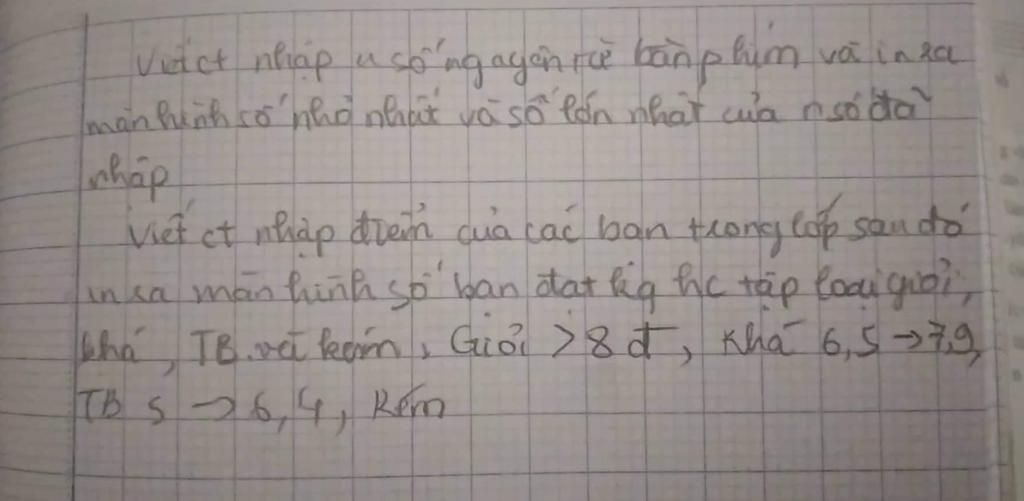 Viết ct nhập n số nguyên từ bàn phím và in ra
màn hình số nhỏ nhất và số lớn nhất của n số đã
nhập
Viết ct nhập điểm của các bạn trong lớp sau đó
in ra màn hình số bạn đạt kq hc tập loại giỏi,
khá, TB và kém, Giỏi > 8 đ, Khá 6,5 → 7,9,
TB 5 → 6,4, Kém